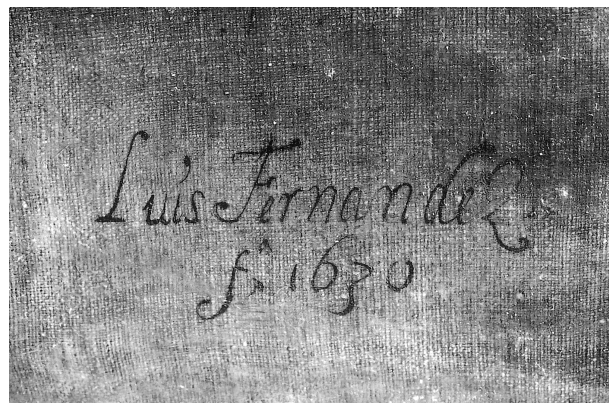 Luis Fernandez
f^ 1630